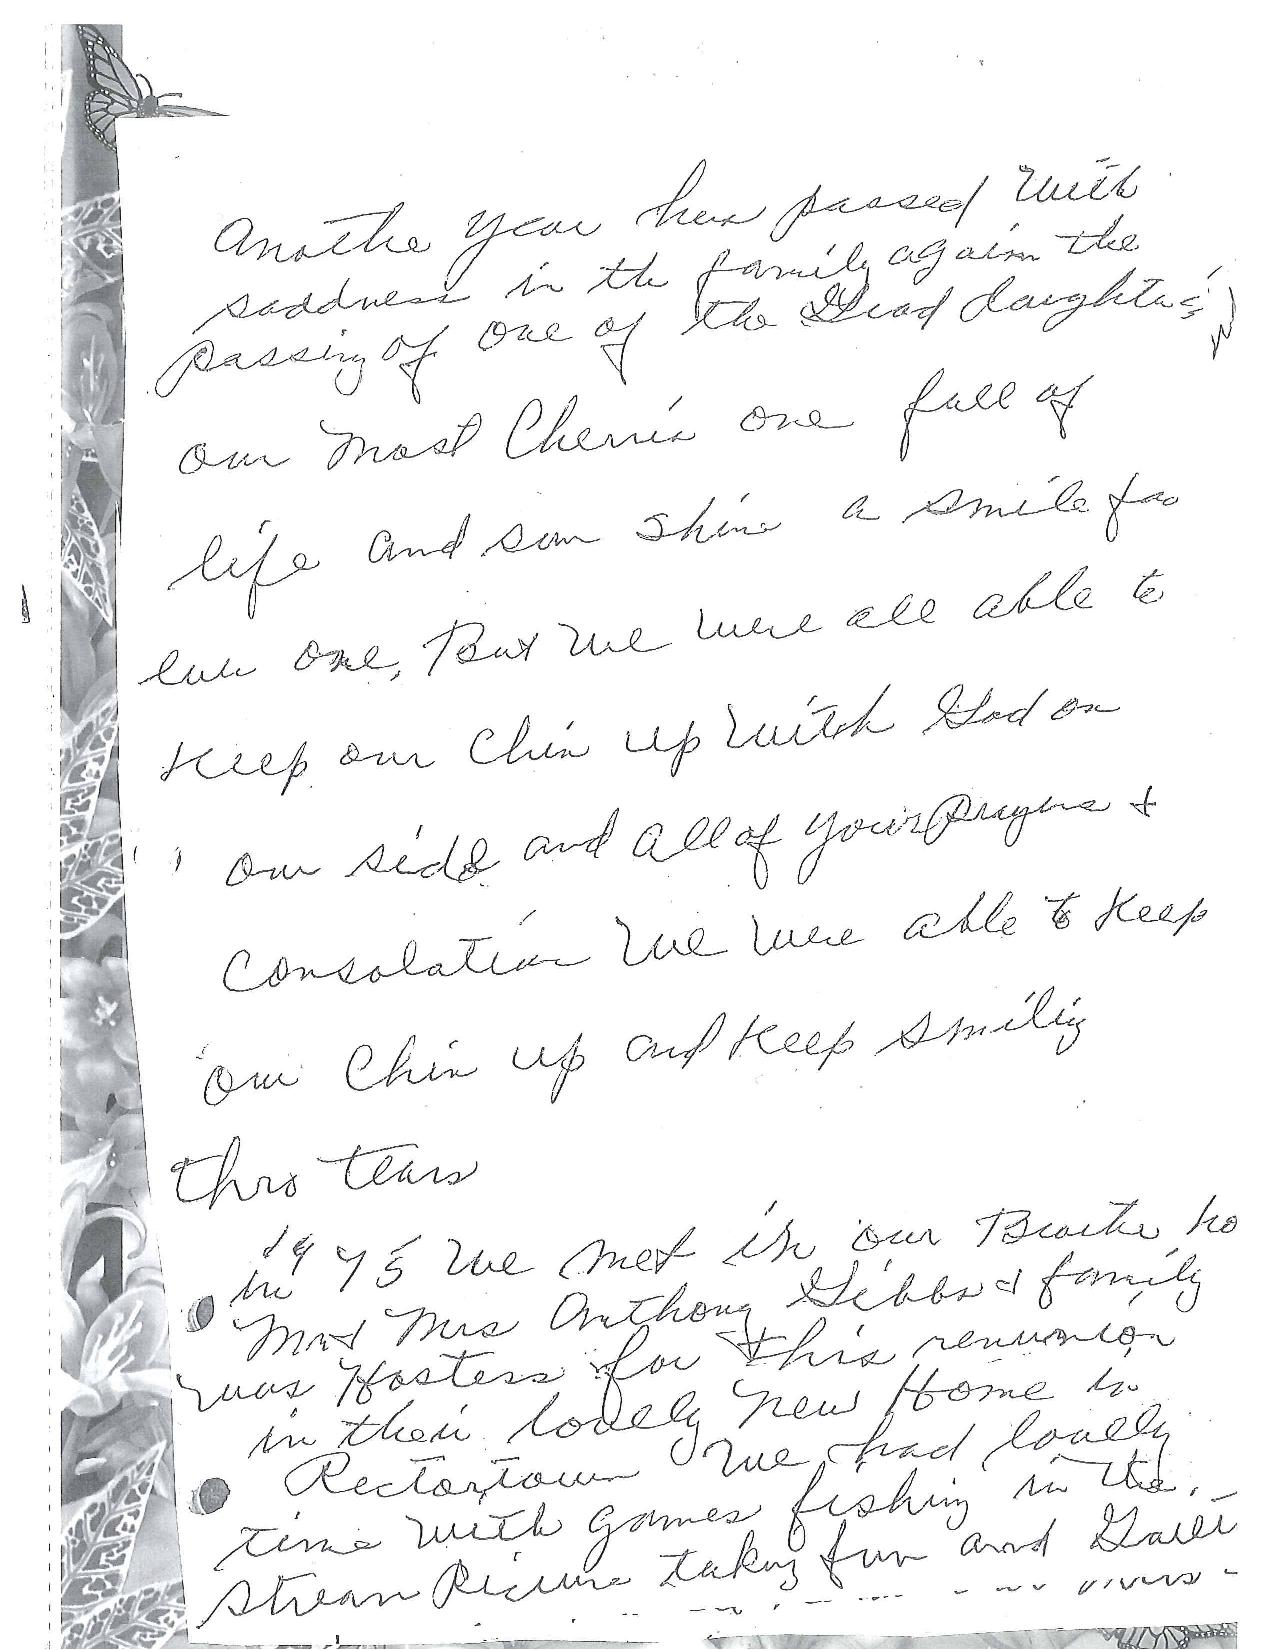 Anothe Year has passed With
saddness in th family again the
passing of one of the Grad daughters
our Most Cherris one full of
life and sun shine a smile for
ever one, But We Were all able to
Keep our Chin up With God on
our side and all of your prayers +
Consolation We Were able to Keep
our Chin up and Keep smiling
thro Tears
in 1975 We Met in our Brothe ho
Mr + Mrs Anthony Gibbs + family
was Hostess for this renunion
in their lovely New Home in
Rectortown We had lovely
time With games fishing in the
stream Picture taking fun and